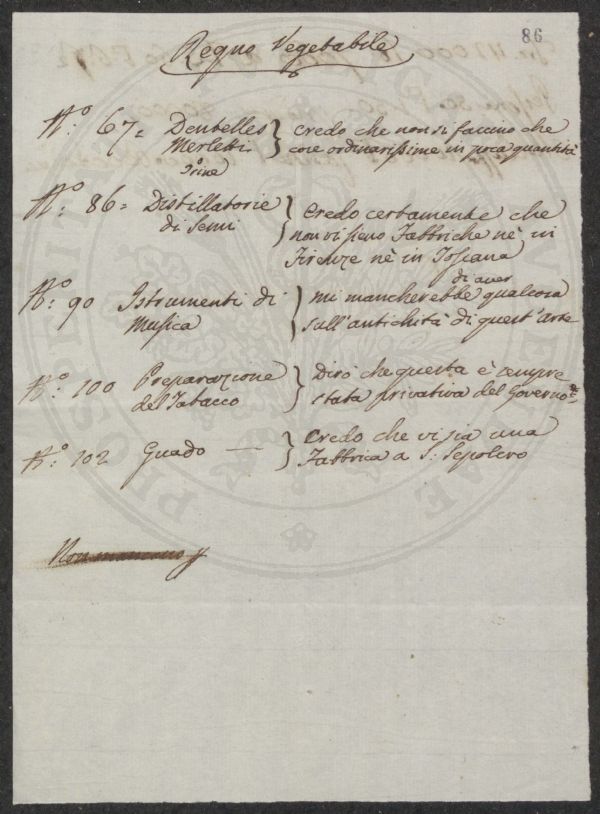 86
Regno Vegetabile
N.º 67= Dentelles } Credo che non si faccino che
Merletti cose ordinarissime in poca quantità
Trine
N.º: 86= Distillatorie } Credo certamente che
di Semi non vi sieno Fabbriche nè in
Firenze nè in Toscana
N.º: 90 Istrumenti di } mi mancherebbe di aver qualcosa
Musica sull'antichità di quest'arte
N.º: 100 Preparazione } Dirò che questa è sempre
del Tabacco stata privativa del Governo
N.º: 102 Guado — } Credo che vi sia una
Fabbrica a S. Sepolcro
Non mancano
PROSPERITA